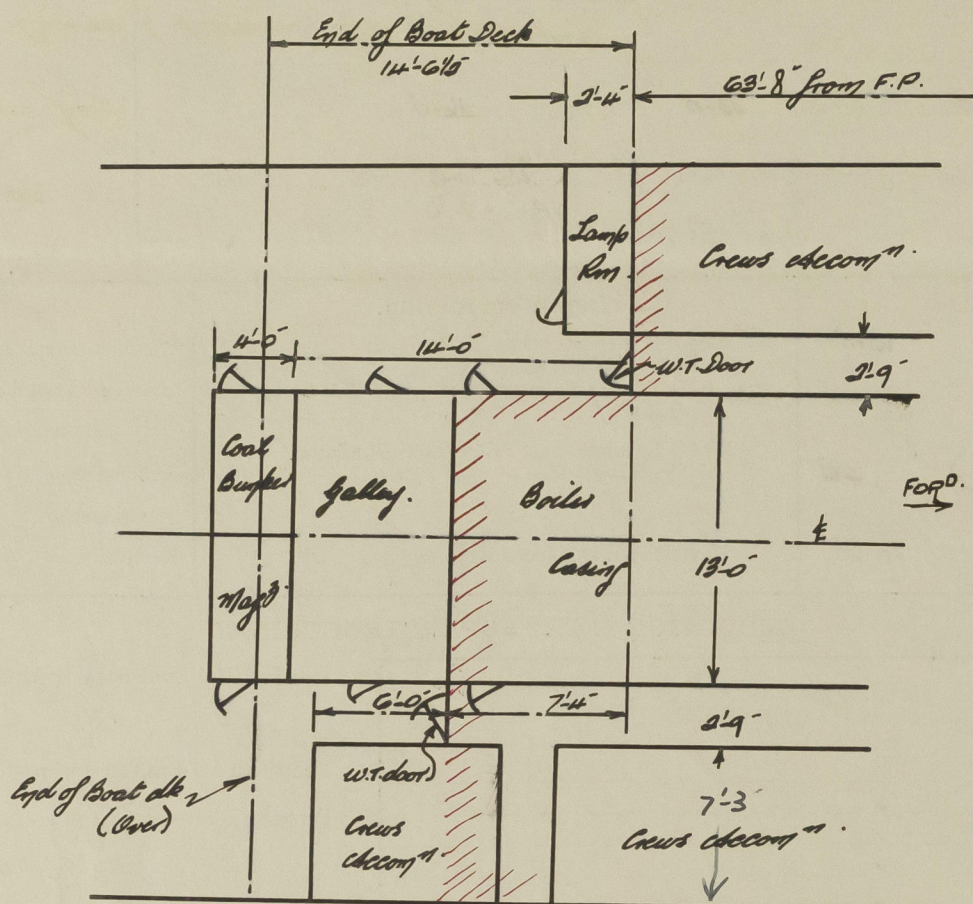 End of Boat Deck
14'-6½"
2'-4"
63'-8" from F.P.
Lamp
Rm.
Crews Accomⁿ.
4'-0"
14'-0"
W.T. Door
2'-9"
Coal
Bunker
Galley.
Boiler
FORᴰ.
℄
Casing
13'-0"
6'-0"
7'-4"
2'-9"
W.T. door
End of Boat dk
(Over)
7'-3"
Crews
Accomⁿ
Crews Accomⁿ.